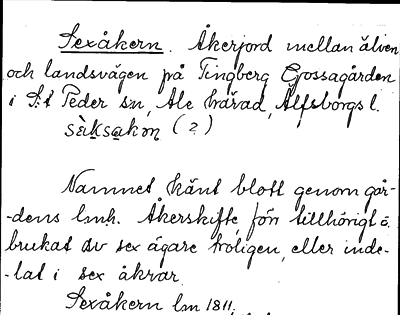 Sexåkern. Åkerjord mellan älven
och landsvägen på Tingberg Gossagården
i S:t Peder sn, Ale härad, Älfsborgs l.
sèksakən (?)
Namnet känt blott genom går-
-dens lmh. Åkerskifte, förr tillhörigt o.
brukat av sex ägare troligen, eller inde-
-lat i sex åkrar.
Sexåkern lm 1811.